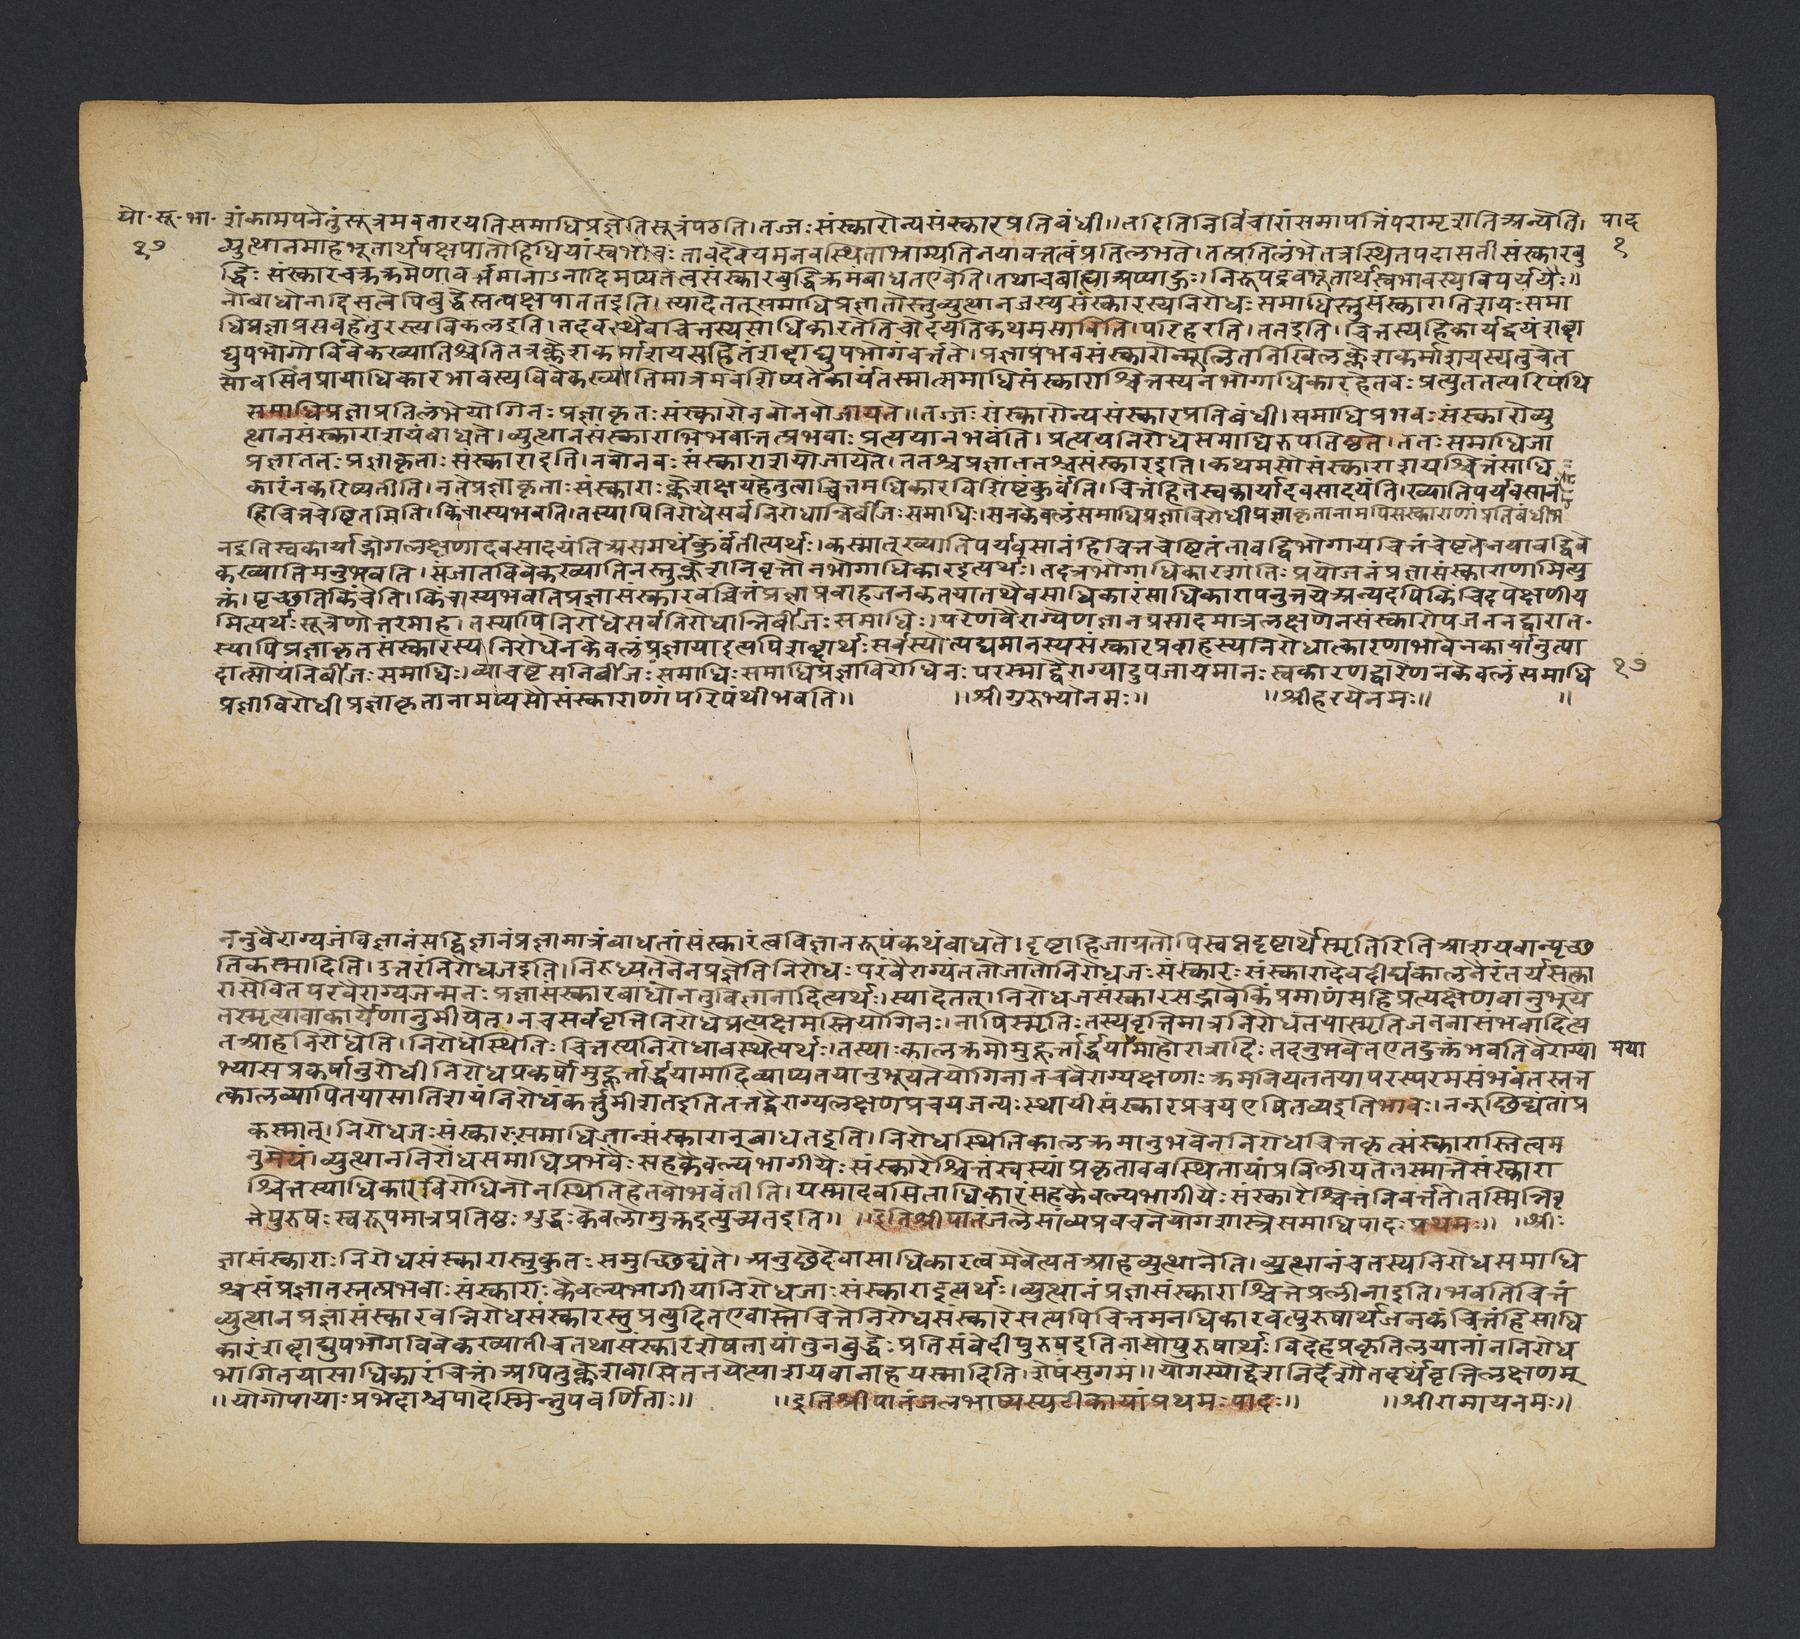 यो. सू. भा. शंकामपनेतुंसूत्रमवतारयतिसमाधिप्रज्ञेतिसूत्रंपठति। तज्जः संस्कारोन्यसंस्कारप्रतिबंधी॥ तदितिनिर्विचारांसमापत्तिंपरामृशतिअन्येति। पाद
१७ व्युत्थानमाहभूतार्थपक्षपातोहिधियांस्वभावः तावदेवेयमनवस्थिताभ्राम्यतिनयावत्तत्वंप्रतिलभते। तत्प्रतिलंभेतत्रस्थितपदासतीसंस्कारबु १
द्धिः संस्कारचक्रक्रमेणावर्त्तमानाऽनादिमप्यतत्वसंस्कारबुद्धिक्रमंबाधतएवेति। तथाचबाह्याअप्याहुः। निरुपद्रवभूतार्थस्वभावस्यविपर्ययैः॥
नबाधोनादिसत्वेपिबुद्धेस्तत्पक्षपाततइति। स्यादेतत्समाधिप्रज्ञातोस्तुव्युत्थानजस्यसंस्कारस्यनिरोधः समाधिस्तुसंस्कारातिशयः समा
धिप्रज्ञाप्रसवहेतुरस्यविकलइति। तदवस्थैवचित्तस्यसाधिकारतेतिचोदयतिकथमसाविति। परिहरति। ततइति। चित्तस्यहिकार्यद्वयंशब्दा
द्युपभोगोविवेकख्यातिश्चेतितत्रक्लेशकर्माशयसहितंशब्दाद्युपभोगेवर्त्तते। प्रज्ञाप्रभवसंस्कारोन्मूलितनिखिलक्लेशकर्माशयस्यतुचेत
सोवसितप्रायाधिकारभावस्यविवेकख्यातिमात्रमवशिष्यतेकार्यंतस्मात्समाधिसंस्काराश्चित्तस्यनभोगाधिकारहेतवः प्रत्युततत्परिपंथि
समाधिप्रज्ञाप्रतिलंभेयोगिनः प्रज्ञाकृतः संस्कारोनवोनवोजायते॥ तज्जः संस्कारोन्यसंस्कारप्रतिबंधी। समाधिप्रभवः संस्कारोव्यु
त्थानसंस्काराशयंबाधते। व्युत्थानसंस्काराभिभवात्तत्प्रभवाः प्रत्ययानभवंति। प्रत्ययनिरोधेसमाधिरुपतिष्ठते। ततः समाधिजा
प्रज्ञाततः प्रज्ञाकृताः संस्काराइति। नवोनवः संस्काराशयोजायते। ततश्चप्रज्ञाततश्चसंस्कारइति। कथमसौसंस्काराशयश्चित्तंसाधि
कारंनकरिष्यतीति। नतेप्रज्ञाकृताः संस्काराः क्लेशक्षयहेतुत्वाच्चित्तमधिकारविशिष्टंकुर्वंति। चित्तंहितेस्वकार्यादवसादयंति। ख्यातिपर्यवसानं
हिचित्तचेष्टितमिति। किंचास्यभवति। तस्यापिनिरोधेसर्वनिरोधान्निर्बीजः समाधिः। सनकेवलंसमाधिप्रज्ञाविरोधीप्रज्ञाकृतानामपिसंस्काराणांप्रतिबंधीभ
नइतिस्वकार्याद्भोगलक्षणादवसादयंतिअसमर्थंकुर्वंतीत्यर्थः। कस्मात्ख्यातिपर्यवसानंहिचित्तचेष्टितंतावद्धिभोगायचित्तंचेष्टतेनयावद्विवे
कख्यातिमनुभवति। संजातविवेकख्यातेस्तुक्लेशनिवृत्तौनभोगाधिकारइत्यर्थः। तदत्रभोगाधिकारशांतिः प्रयोजनंप्रज्ञासंस्काराणामित्यु
क्तं। पृच्छतिकिंचेति। किंचास्यभवतिप्रज्ञासंस्कारवच्चित्तंप्रज्ञाप्रवाहजनकतयातथैवसाधिकारंसाधिकारापनुत्तयेअन्यदपिकिंचिदपेक्षणीय
मित्यर्थः सूत्रेणोत्तरमाह। तस्यापिनिरोधेसर्वनिरोधान्निर्बीजः समाधिः। परेणवैराग्येणज्ञानप्रसादमात्रलक्षणेनसंस्कारोपजननद्वारात.
स्यापिप्रज्ञाकृतसंस्कारस्यनिरोधेनकेवलंप्रज्ञायाइत्यपिशब्दार्थः सर्वस्योत्पद्यमानस्यसंस्कारप्रवाहस्यनिरोधात्कारणाभावेनकार्यानुत्पा
दात्सोयंनिर्बीजः समाधिः। व्याचष्टेसनिर्बीजः समाधिः समाधिप्रज्ञाविरोधिनः परस्माद्वैराग्यादुपजायमानः स्वकारणद्वारेणनकेवलंसमाधि १७
प्रज्ञाविरोधीप्रज्ञाकृतानामप्यसौसंस्काराणांपरिपंथीभवति॥ ॥श्रीगुरुभ्योनमः॥ ॥श्रीहरयेनमः॥ ॥
ननुवैराग्यजंविज्ञानंसद्विज्ञानंप्रज्ञामात्रंबाधतांसंस्कारंत्वविज्ञानरूपंकथंबाधते। दृष्टाहिजाग्रतोपिस्वप्नदृष्टार्थेस्मृतिरितिआशयवान्पृच्छ
तिकस्मादिति। उत्तरंनिरोधजइति। निरुध्यतेनेनप्रज्ञेतिनिरोधः परंवैराग्यंततोजातोनिरोधजः संस्कारः संस्कारादेवदीर्घकालनैरंतर्यसत्का
रासेवितपरवैराग्यजन्मनः प्रज्ञासंस्कारबाधोनतुविज्ञानादित्यर्थः। स्यादेतत्। निरोधजसंस्कारसद्भावेकिंप्रमाणंसहिप्रत्यक्षेणवानुभूये
तस्मृत्यावाकार्येणानुमीयेत। नचसर्ववृत्तिनिरोधेप्रत्यक्षमस्तियोगिनः। नापिस्मृतिः तस्यवृत्तिमात्रनिरोधतयास्मृतिजननासंभवादित्य
तआहनिरोधेति। निरोधस्थितिः चित्तस्यनिरोधावस्थेत्यर्थः। तस्याः कालक्रमोमुहूर्त्तार्द्धयामाहोरात्रादिः तदनुभवेनएतदुक्तंभवतिवैराग्या मया
भ्यासप्रकर्षानुरोधीनिरोधप्रकर्षोमुहूर्त्तार्द्धयामादिव्याप्यतयानुभूयतेयोगिनानचवैराग्यक्षणाः क्रमनियततयापरस्परमसंभवंतस्तत्त
त्कालव्यापितयासातिशयंनिरोधंकर्त्तुमीशतइतितत्तद्वैराग्यलक्षणप्रचयजन्यः स्थायीसंस्कारप्रचयएषितव्यइतिभावः। ननूच्छिद्यंतांप्र
कस्मात्। निरोधजः संस्कारः समाधिजान्संस्कारान्बाधतइति। निरोधस्थितिकालक्रमानुभवेननिरोधचित्तकृतसंस्कारास्तित्वम
नुमेयं। व्युत्थाननिरोधसमाधिप्रभवैः सहकैवल्यभागीयैः संस्कारैश्चित्तंस्वस्यांप्रकृताववस्थितायांप्रविलीयतेतस्मात्तेसंस्कारा
श्चित्तस्याधिकारविरोधिनोनस्थितिहेतवोभवंतीति। यस्मादवसिताधिकारंसहकैवल्यभागीयैः संस्कारैश्चित्तंनिवर्त्तते। तस्मिन्निवृ
त्तेपुरुषः स्वरूपमात्रप्रतिष्ठः शुद्धः केवलोमुक्तइत्युच्यतइति॥ ॥इतिश्रीपातंजलेसांख्यप्रवचनेयोगशास्त्रेसमाधिपादः प्रथमः॥ ॥श्रीः
ज्ञासंस्काराः निरोधसंस्कारास्तुकुतः समुच्छिद्यंते। अनुच्छेदेवासाधिकारत्वमेवेत्यतआहव्युत्थानेति। व्युत्थानंचतस्यनिरोधसमाधि
श्चसंप्रज्ञातस्तत्प्रभवाः संस्काराः कैवल्यभागीयानिरोधजाः संस्काराइत्यर्थः। व्युत्थानंप्रज्ञासंस्काराश्चित्तेप्रलीनाइति। भवतिचित्तं
व्युत्थानप्रज्ञासंस्कारवन्निरोधसंस्कारस्तुप्रत्युदितएवास्तेचित्तेनिरोधसंस्कारेसत्यपिचित्तमनधिकारवत्पुरुषार्थजनकंचित्तंहिसाधि
कारंशब्दाद्युपभोगविवेकख्यातीचतथासंस्कारशेषतायांतुनबुद्धेः प्रतिसंवेदीपुरुषइतिनासौपुरुषार्थः विदेहप्रकृतिलयानांननिरोध
भागितयासाधिकारंचित्तं। अपितुक्लेशवासिततयेत्याशयवानाहयस्मादिति। शेषंसुगमं॥ योगस्योद्देशनिर्देशौतदर्थंवृत्तिलक्षणम्
॥योगोपायाः प्रभेदाश्चपादेस्मिन्नुपवर्णिताः॥ ॥इतिश्रीपातंजलभाष्यस्यटीकायांप्रथमः पादः॥ ॥श्रीरामायनमः॥